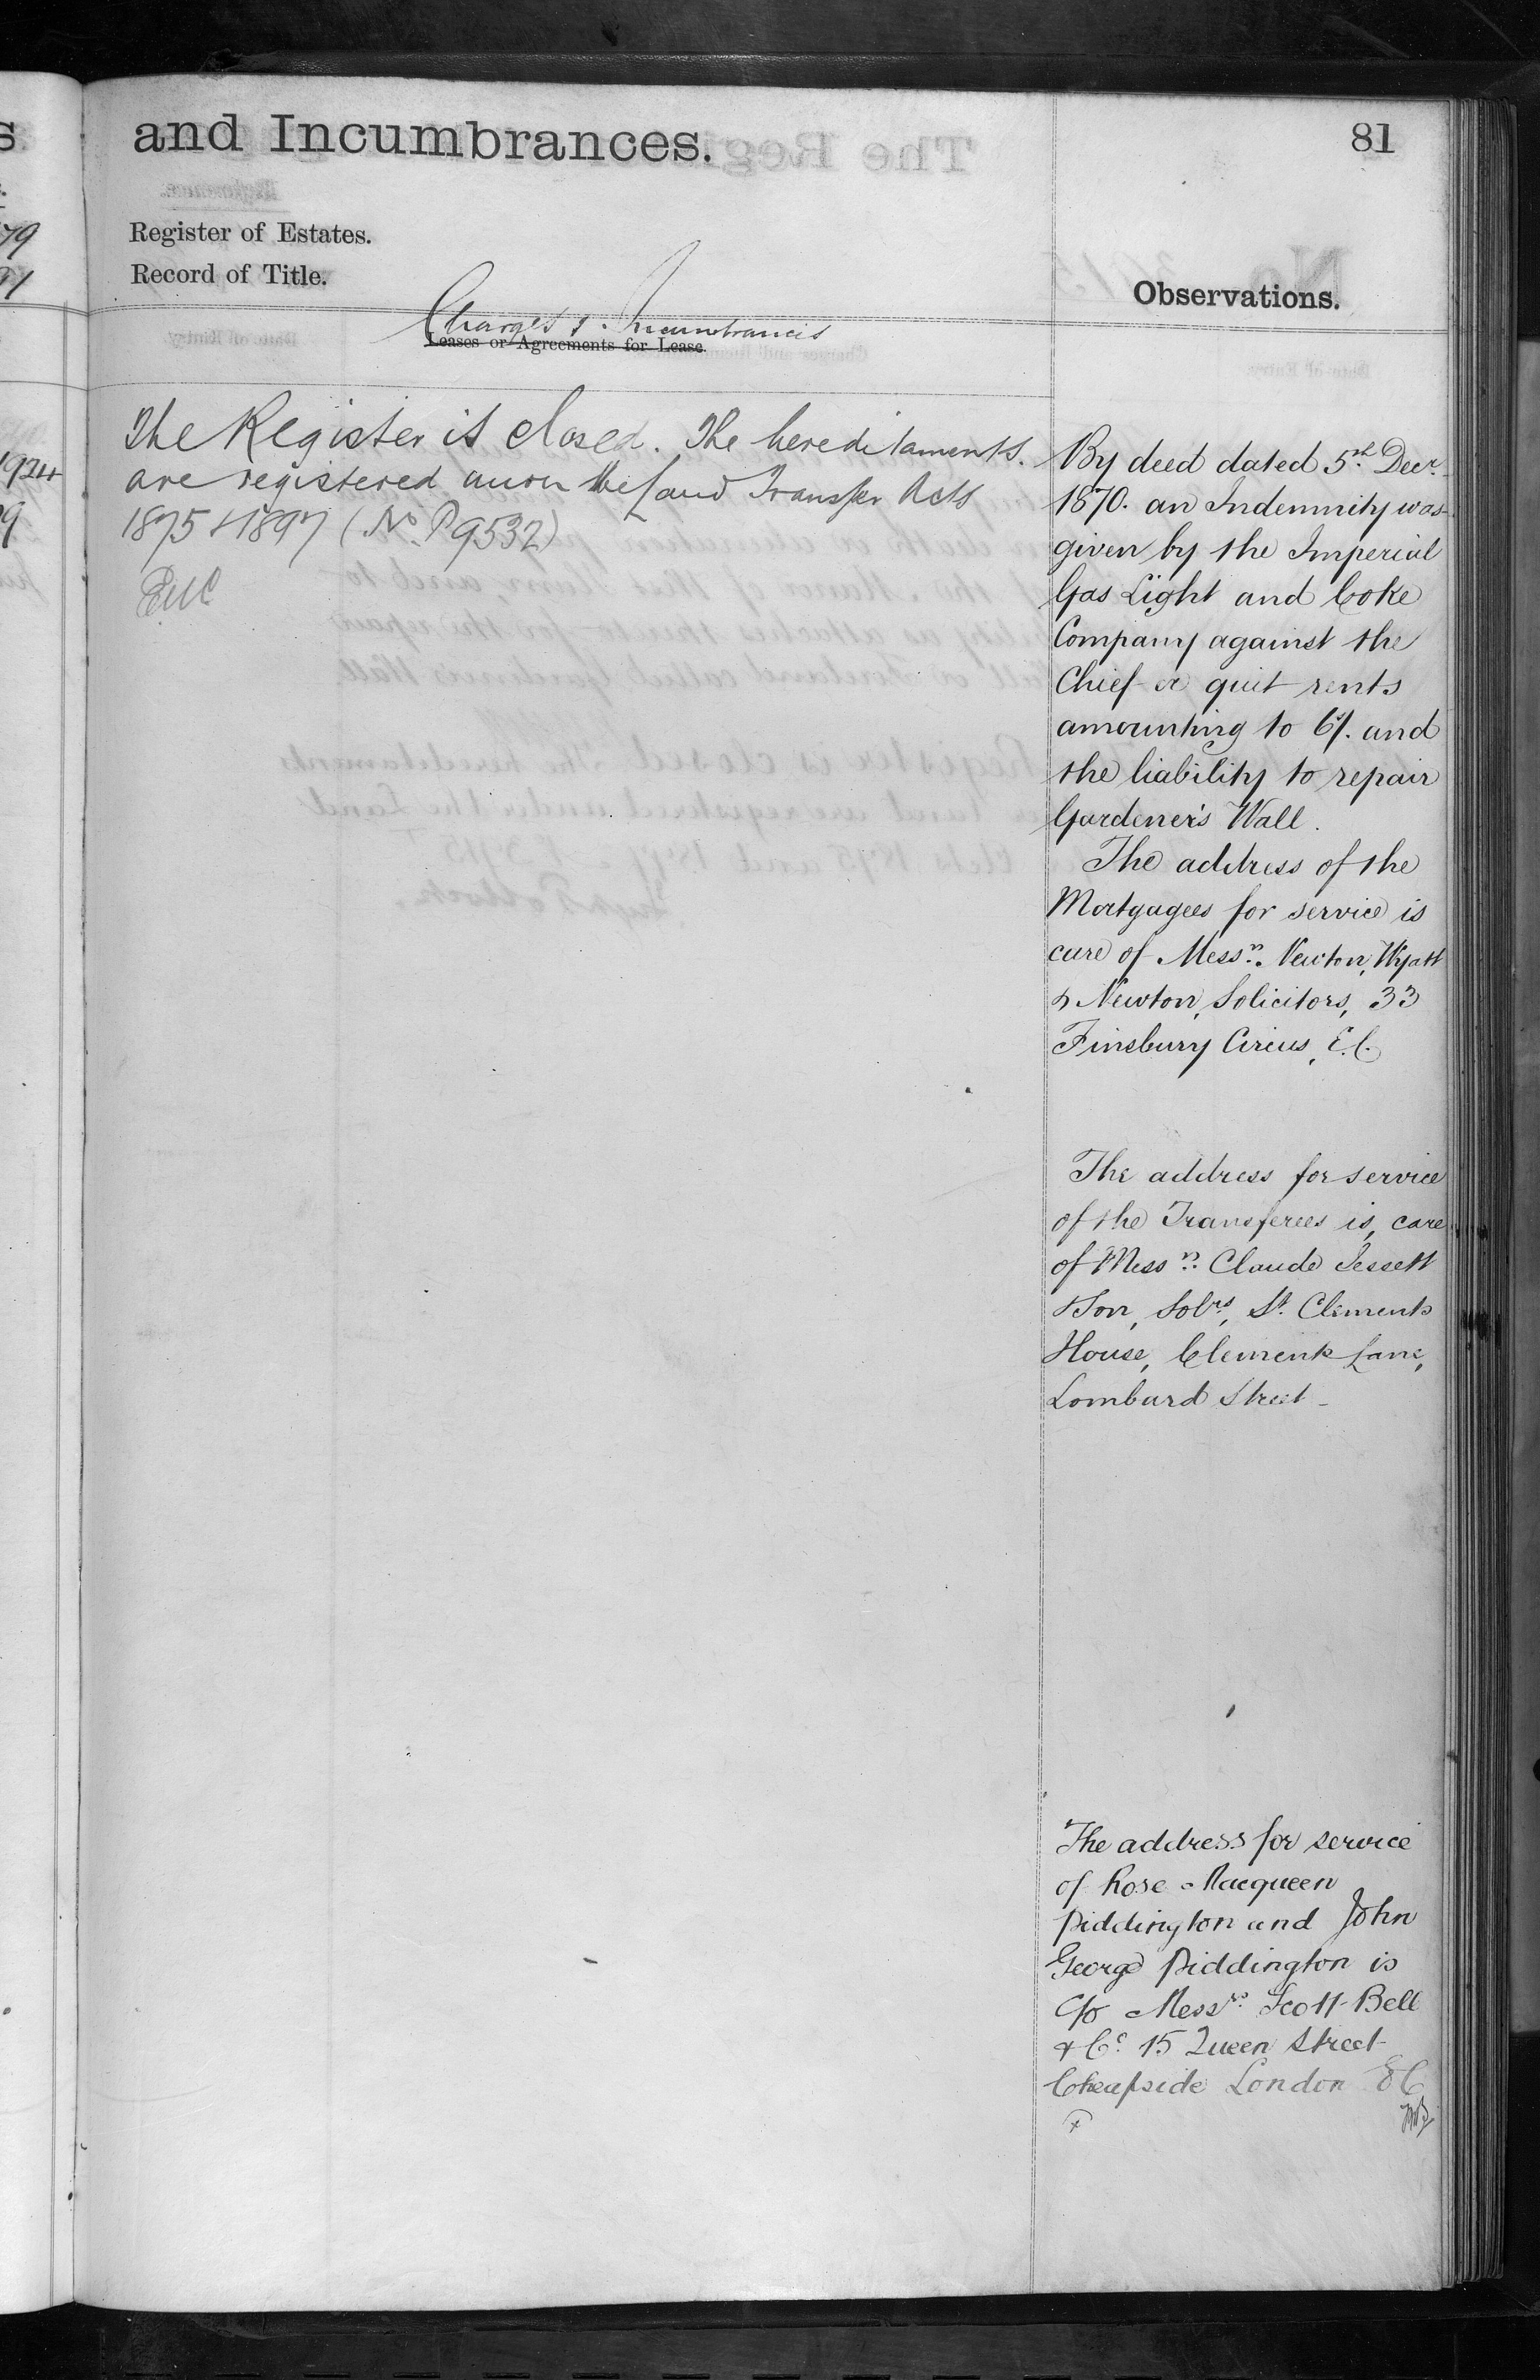 and Incumbrances.
81
Register of Estates.
Record of Title.
Observations.
Charges & Incumbrances
Leases or Agreements for Lease.
The Register is closed. The hereditaments.
are registered under the Land Transfer Acts
1875 & 1897 (No. P9532)
By deed dated 5th Decr.
1870. an Indemnity was
given by the Imperial
Gas Light and Coke
Company against the
Chief or quit rents
amounting to 6/. and
the liability to repair
Gardener's Wall.
The address of the
Mortgagees for service is
care of Messrs. Newton, Wyatt
& Newton, Solicitors, 33
Finsbury Circus, E.C.
The address for service
of the Transferees is, care
of Messrs. Claude Jessett
& Son, Solrs, St. Clements
House, Clements Lane,
Lombard Street
The address for service
of Rose Macqueen
Piddington and John
George Piddington is
c/o Messrs. Scott Bell
& Co. 15 Queen Street
Cheapside London EC